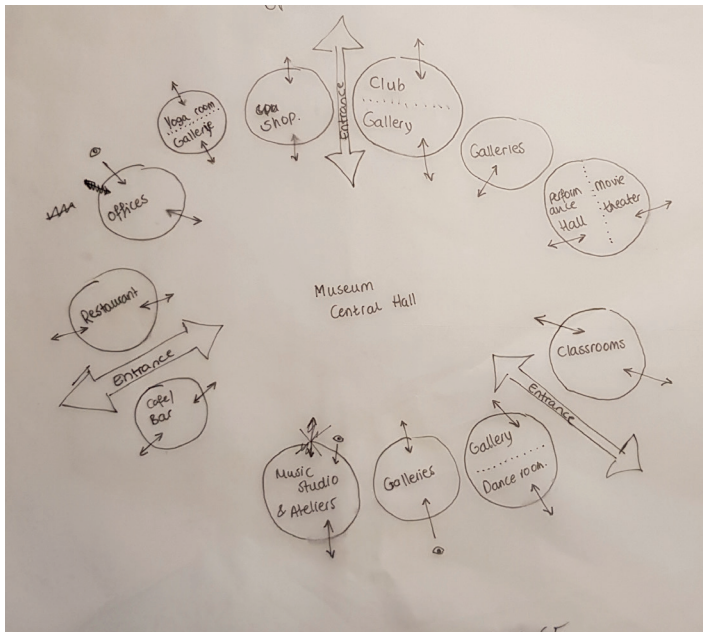 Yoga room
Gallerie
shop.
Entrance
Club
Gallery
Galleries
Perform
ance
Hall
movie
theater
Offices
Museum
Central Hall
Restaurant
Entrance
Cafe/
Bar
Classrooms
Entrance
Gallery
Dance room.
Galleries
Music
Studio
& Ateliers